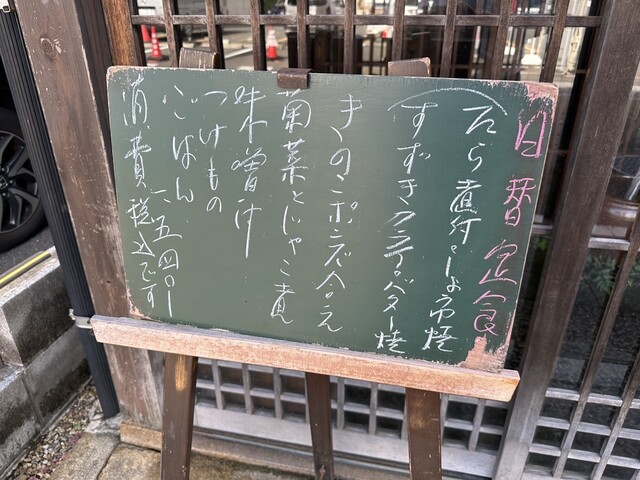 日替定食
たら しょう油焼
すずき バター焼
きのこポンズ合え
菊菜とじゃこ煮
味噌汁
つけもの
ごはん 一、五四〇ー
消費税込です